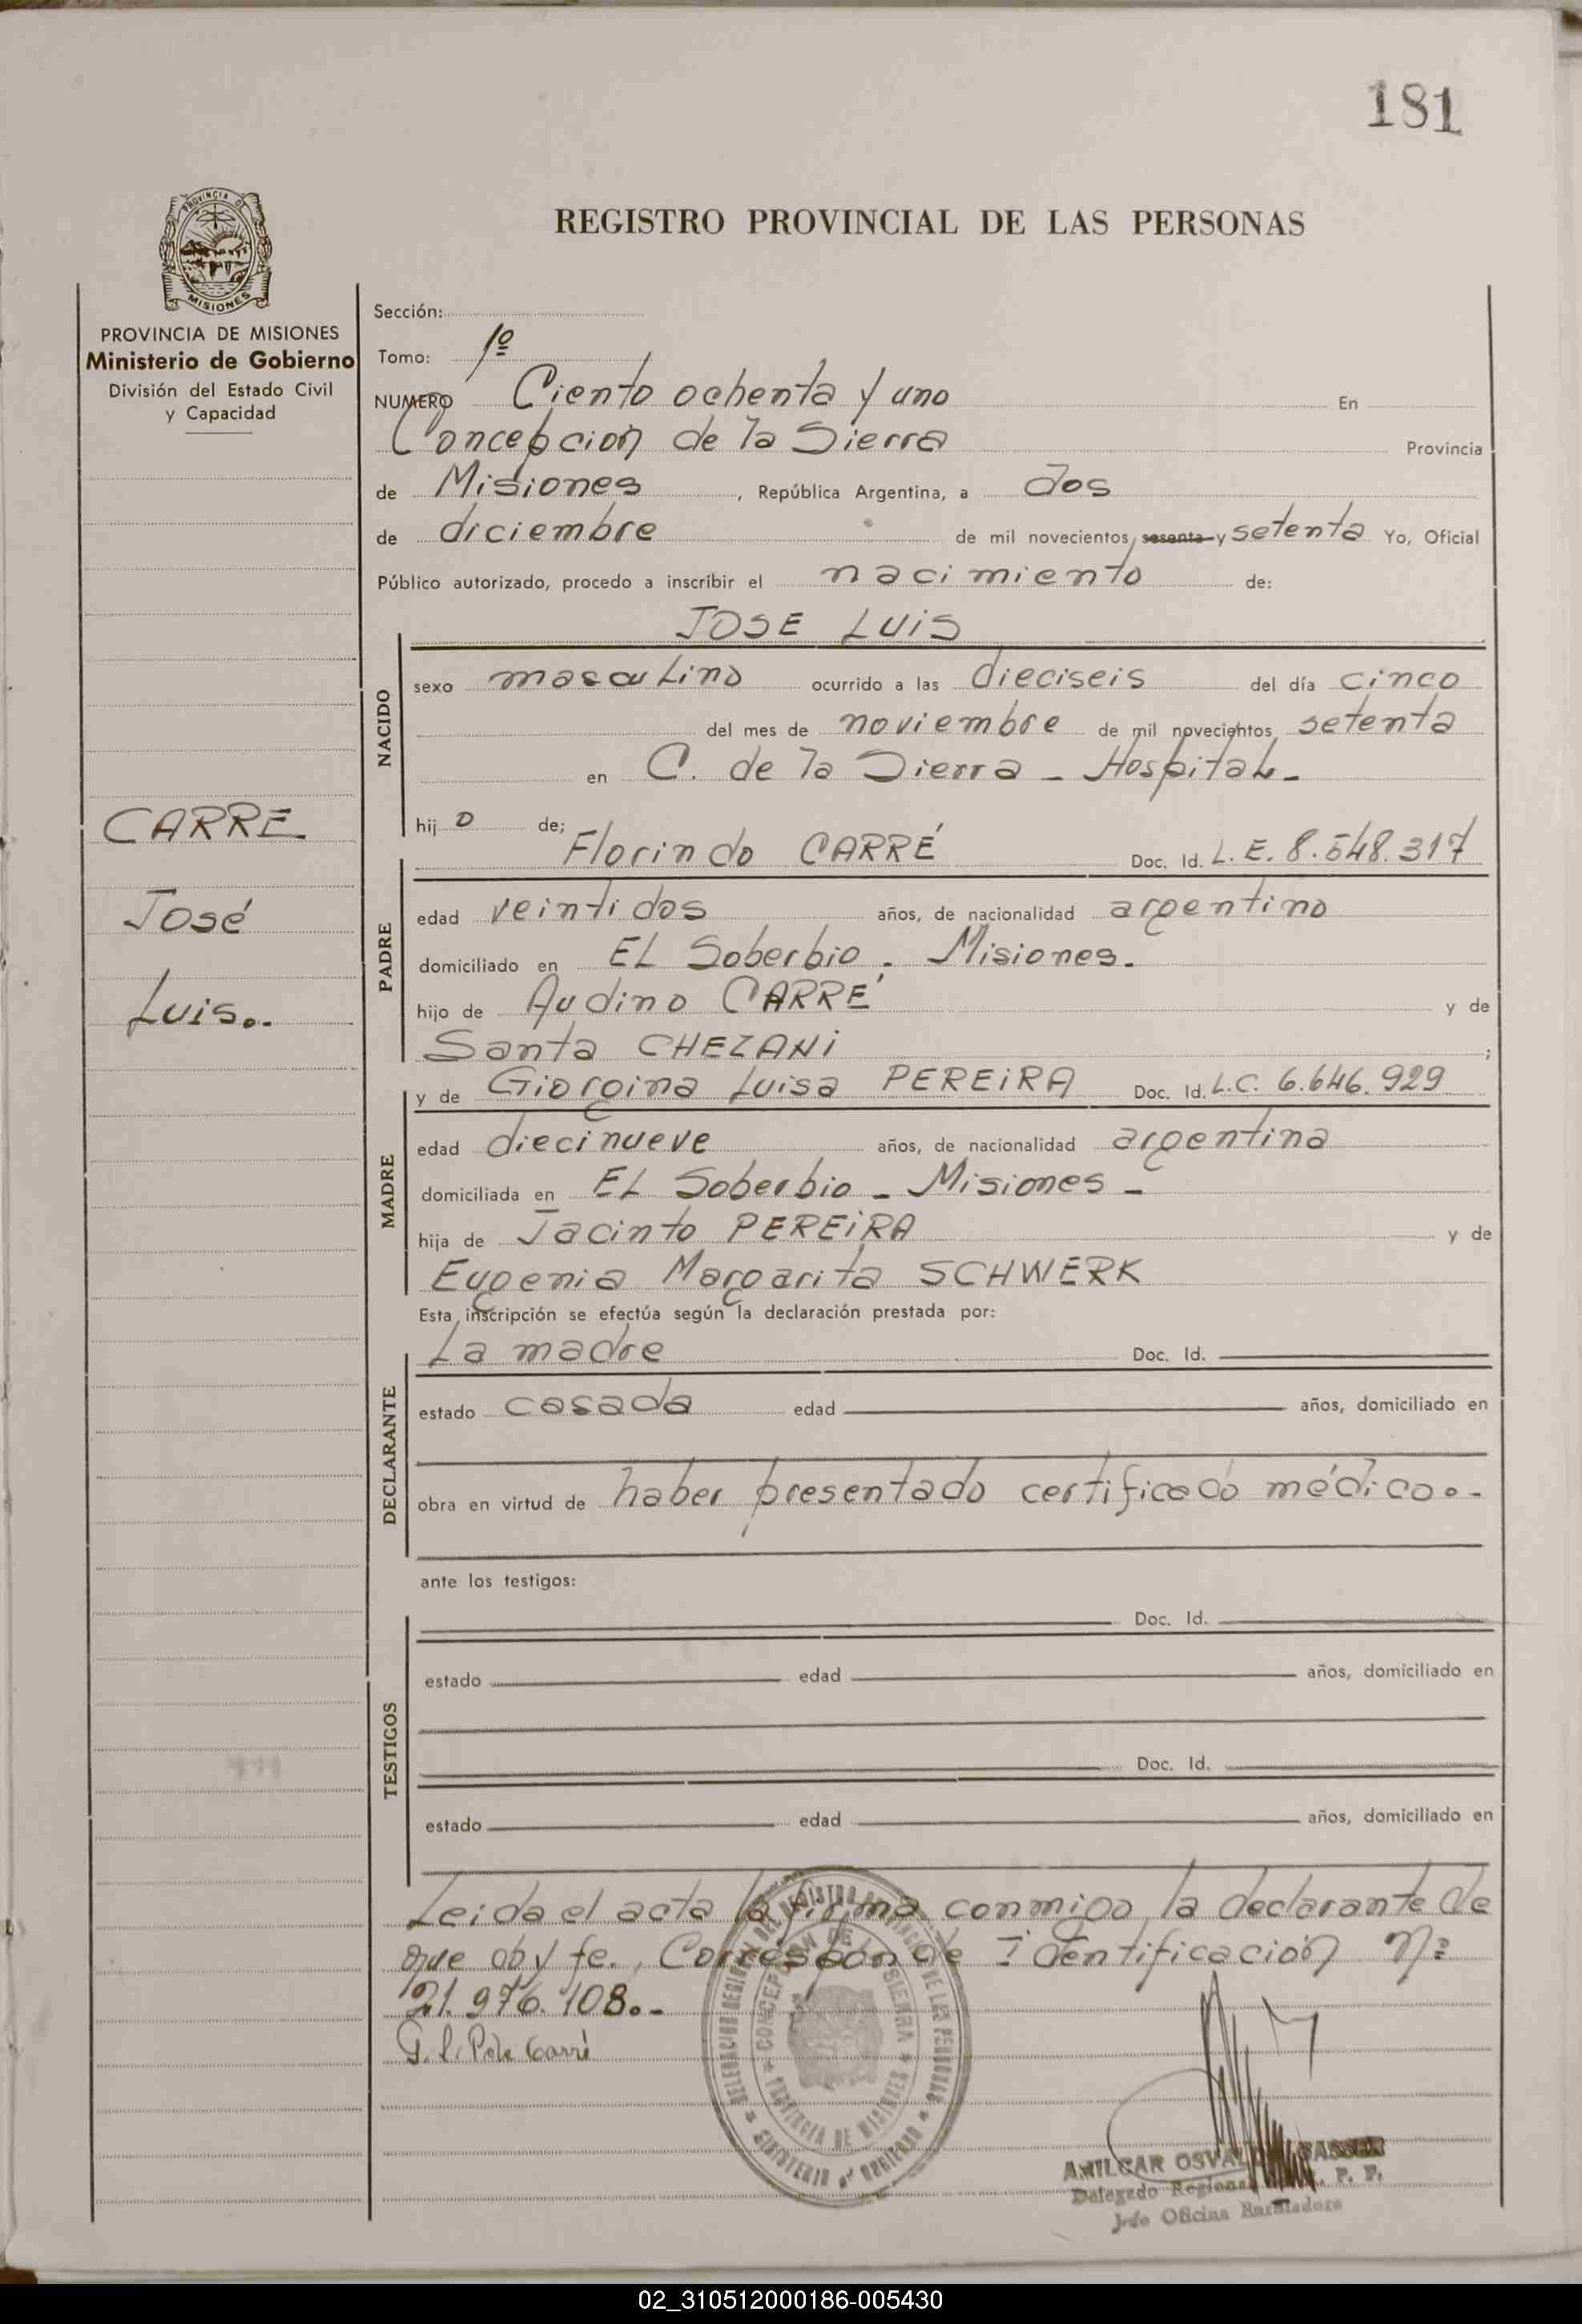 181
PROVINCIA DE
MISIONES
REGISTRO PROVINCIAL DE LAS PERSONAS
PROVINCIA DE MISIONES
Ministerio de Gobierno
División del Estado Civil
y Capacidad
CARRE
José
Luis.-
Sección:
Tomo: 1º
NUMERO Ciento ochenta y uno En
Concepcion de la Sierra Provincia
de Misiones, República Argentina, a dos
de diciembre de mil novecientos sesenta y setenta Yo, Oficial
Público autorizado, procedo a inscribir el nacimiento de:
JOSE LUIS
NACIDO
sexo masculino ocurrido a las dieciseis del día cinco
del mes de noviembre de mil novecientos setenta
en C. de la Sierra - Hospital -
hijo de;
Florindo CARRÉ Doc. Id. L.E. 8.548.317
PADRE
edad veintidos años, de nacionalidad argentino
domiciliado en EL Soberbio. Misiones.
hijo de Audino CARRÉ y de
Santa CHEZANi;
y de Giorgina Luisa PEREiRA Doc. Id. L.C. 6.646.929
MADRE
edad diecinueve años, de nacionalidad argentina
domiciliada en EL Soberbio - Misiones -
hija de Jacinto PEREiRA y de
Eugenia Margarita SCHWERK
Esta inscripción se efectúa según la declaración prestada por:
La madre Doc. Id.
DECLARANTE
estado casada edad años, domiciliado en
obra en virtud de haber presentado certificado médico.-
ante los testigos:
Doc. Id.
TESTIGOS
estado edad años, domiciliado en
Doc. Id.
estado edad años, domiciliado en
Leida el acta la firma conmigo la declarante de
que doy fe. Corresponde Identificación Nº
21.976.108.-
CONCEPCION DE LA SIERRA
PROVINCIA DE MISIONES
AMILCAR OSVALDO
Delegado Regional R. P. P.
Jefe Oficina
02_310512000186-005430